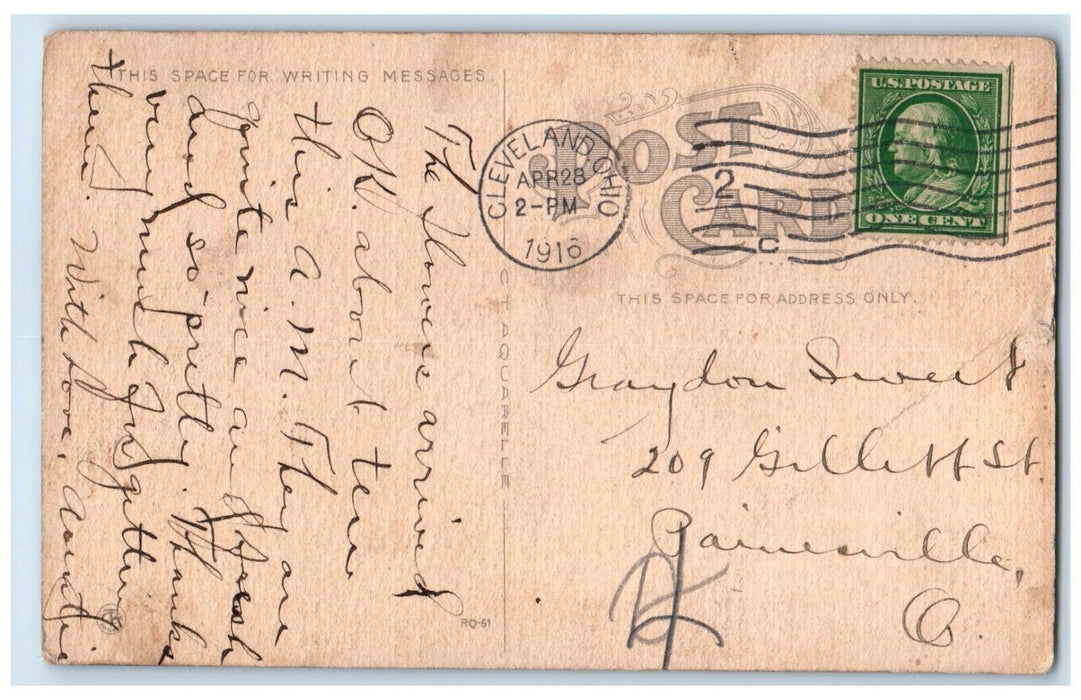 THIS SPACE FOR WRITING MESSAGES.
The flowers arrived
OK. about ten
this A. M. They are
quite nice and fresh
and so pretty. Thanks
very much for getting
them. With love, Auntie
POST CARD
CLEVELAND, OHIO
APR 28
2-PM
1916
2
C
U.S. POSTAGE
ONE CENT
THIS SPACE FOR ADDRESS ONLY.
CT AQUARELLE
Graydon Sweet
209 Gillett St
Painesville,
O.
RQ-51